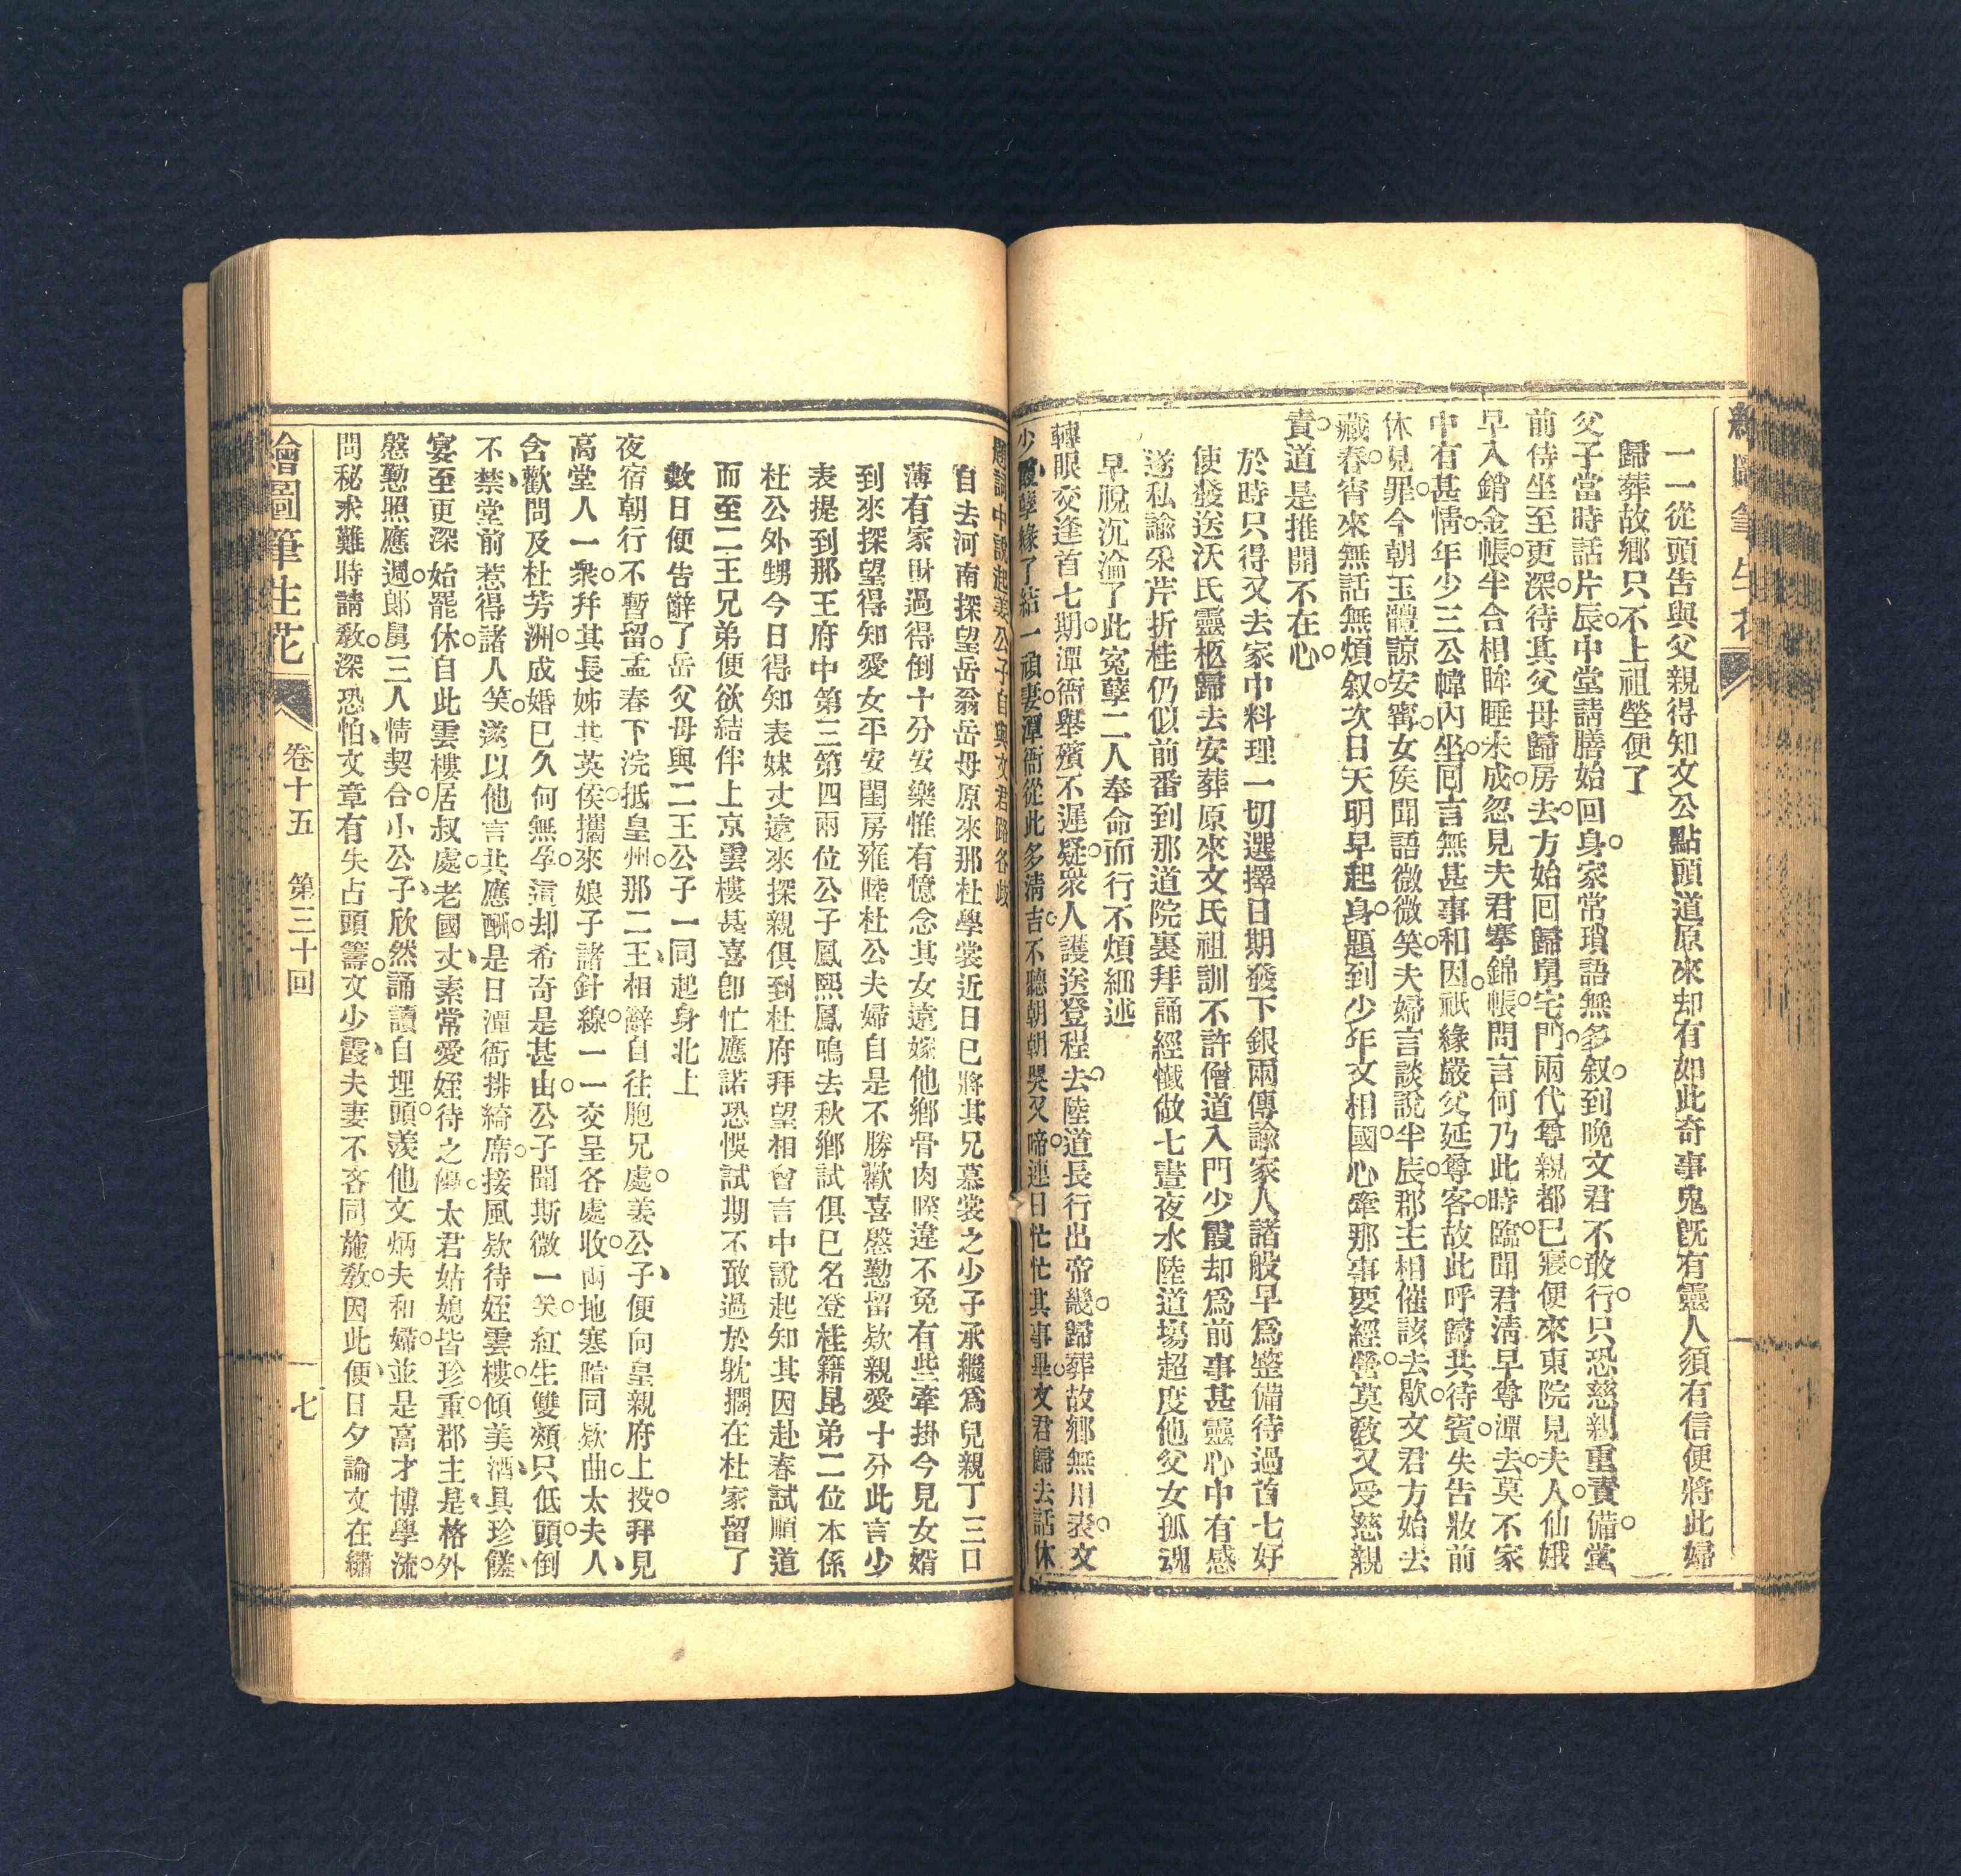 一一從頭告與父親得知文公點頭道原來却有如此奇事鬼既有靈人須有信便將此婦
歸葬故鄉只不上祖塋便了
父子當時話片辰○中堂請膳始回身○家常瑣語無多叙○到晚文君不敢行○只恐慈親重責備○堂
前侍坐至更深○待其父母歸房去○方始回歸舅宅門○兩代尊親都已寢○便來東院見夫人○仙娥
早入銷金帳○半合相眸睡未成○忽見夫君搴錦帳○問言何乃此時臨○聞君清早尊潭去○莫不家
中有甚情○年少三公幃內坐○回言無甚事和因○祇緣嚴父延尊客○故此呼歸共待賓○失告妝前
休見罪○今朝玉體諒安甯○女侯聞語微微笑○夫婦言談說半辰○郡主相催該去歇○文君方始去
藏春○宵來無話無煩叙○次日天明早起身○題到少年文相國○心牽那事要經營○莫教又受慈親
責○道是推開不在心○
於時只得又去家中料理一切選擇日期發下銀兩傳諭家人諸般早爲整備待過首七好
使發送沃氏靈柩歸去安葬原來文氏祖訓不許僧道入門少霞却爲前事甚靈心中有感
遂私諭采芹折桂仍似前番到那道院裏拜誦經懺做七晝夜水陸道場超度他父女孤魂
早脫沉淪了此冤孽二人奉命而行不煩細述
轉眼交逢首七期○潭衙舉殯不遲疑○衆人護送登程去○陸道長行出帝畿○歸葬故鄉無用表○文
少霞孽緣了結一頑妻○潭衙從此多清吉○不聽朝朝哭又啼○連日忙忙其事畢○文君歸去話休
題○詞中說起姜公子○自與文君路各歧
自去河南探望岳翁岳母原來那杜學裳近日已將其兄慕裳之少子承繼爲兒親丁三口
薄有家財過得倒十分安樂惟有憶念其女遠嫁他鄉骨肉睽違不免有些牽掛今見女婿
到來探望得知愛女平安閨房雍睦杜公夫婦自是不勝歡喜慇懃留欵親愛十分此言少
表提到那王府中第三第四兩位公子鳳熙鳳鳴去秋鄉試俱已名登桂籍昆弟二位本係
杜公外甥今日得知表妹丈遠來探親俱到杜府拜望相會言中說起知其因赴春試順道
而至二王兄弟便欲結伴上京雲樓甚喜卽忙應諾恐悞試期不敢過於躭擱在杜家留了
數日便告辭了岳父母與二王公子一同起身北上
夜宿朝行不暫留○孟春下浣抵皇州○那二王、相辭自往胞兄處○姜公子、便向皇親府上投○拜見
高堂人一衆○幷其長姊共英侯○攜來娘子諸針線○一一交呈各處收○兩地寒暄同欵曲○太夫人、
含歡問及杜芳洲○成婚已久何無孕○這却希奇是甚由○公子聞斯微一笑○紅生雙頰只低頭○倒
不禁、堂前惹得諸人笑○遂以他言共應酬○是日潭衙排綺席○接風欵待姪雲樓○傾美酒、具珍饈、
宴至更深始罷休○自此雲樓居叔處○老國丈、素常愛姪待之優○太君姑媳皆珍重○郡主是、格外
慇懃照應週○郎舅三人情契合○小公子、欣然誦讀自埋頭○羨他文炳夫和婦○並是高才博學流○
問秘求難時請教○深恐怕、文章有失占頭籌○文少霞、夫妻不吝同施教○因此便、日夕論文在繡
繪圖筆生花 卷十五 第三十回 七